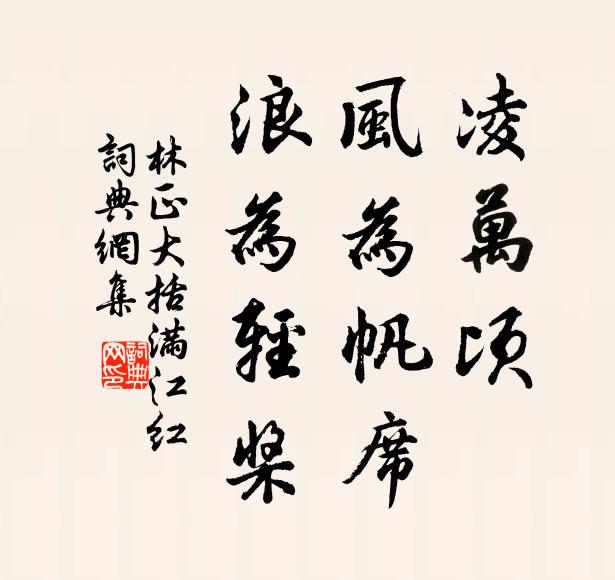 凌萬頃
風為帆席
浪為輕槳
林正大括滿江紅
詞典網集
詞典网印